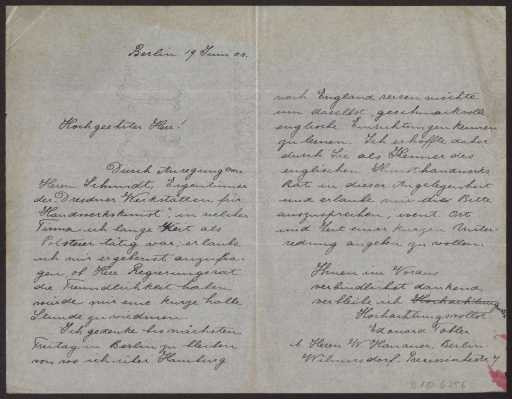 Berlin 19 Juni 02.
Hochgeehrter Herr!
Durch Anregung von
Herrn Schmidt, Eigentümer
der Dresdner Werkstätten für
Handwerkskunst, in welcher
Firma ich lange Zeit als
Polsterer tätig war, erlaube
ich mir ergebenst anzufra-
gen, ob Herr Regierungsrat
die Freundlichkeit haben
würde mir eine kurze halbe
Stunde zu widmen.
Ich gedenke bis nächsten
Freitag in Berlin zu bleiben
von wo ich über Hamburg
nach England reisen möchte
um daselbst geschmackvolle
englische Einrichtungen kennen
zu lernen. Ich erhoffte daher
durch Sie als Kenner des
englischen Kunsthandwerks
Rat in dieser Angelegenheit
und erlaube mir diese Bitte
auszusprechen, event. Ort
und Zeit einer kurzen Unter-
redung angeben zu wollen.
Ihnen im Voraus
verbindlichst dankend
verbleibe ich Hochachtung
Hochachtungsvollst
Eduard
b. Herrn W Hanauer, Berlin
Wilmersdorf,